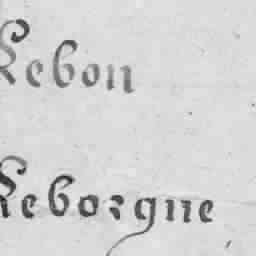 Lebon
Leborgne